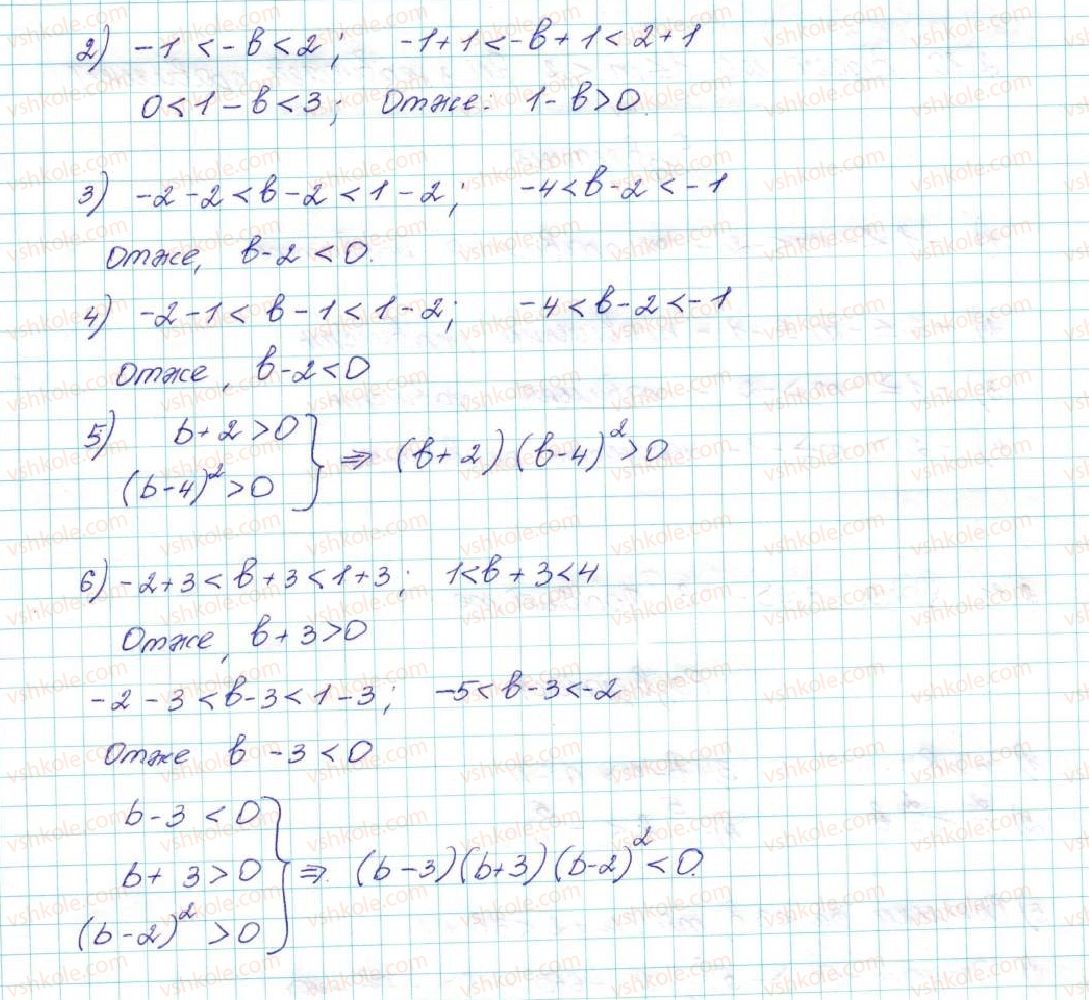 2) -1 < -b < 2; -1+1 < -b+1 < 2+1
0 < 1-b < 3; Отже: 1-b > 0.
3) -2-2 < b-2 < 1-2; -4 < b-2 < -1
Отже, b-2 < 0.
4) -2-1 < b-1 < 1-2; -4 < b-2 < -1
Отже, b-2 < 0
5) b+2 > 0
(b-4)² > 0 } ⇒ (b+2)(b-4)² > 0
6) -2+3 < b+3 < 1+3; 1 < b+3 < 4
Отже, b+3 > 0
-2-3 < b-3 < 1-3; -5 < b-3 < -2
Отже b-3 < 0
b-3 < 0
b+3 > 0 } ⇒ (b-3)(b+3)(b-2)² < 0.
(b-2)² > 0
vshkole.com